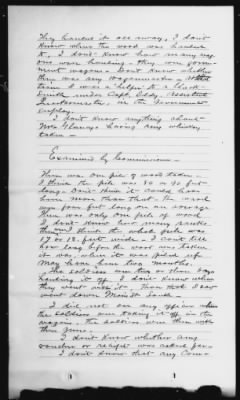 They hauled it all away, I don't
know when the wood was hauled
it, I don't know how many wag-
ons were hauling - they were govern-
ment wagons - Don't know whether
there was any wagonmaster
team I was a helper to a black-
smith under Capt. Eddy
Quartermaster, in the Government
employ.
I don't know anything about
Mrs having any whiskey
taken -
Examined by Commissioner -
There was one pile of wood taken -
I think the pile was 80 or 90 feet
long - Don't think it could have
been more than that. The wood
was four feet long on an average
There was only one pile of wood
I don't know how many ranks
there was I think the whole pile was
17 or 18 feet wide - I can't tell
how long before the wood was taken
it was, when it was piled up
May have been two months.
The soldiers were two or three days
hauling it off I don't know where
they went with it. Then that I saw
went down Main St South -
I did not see any officer when
the soldiers were taking it off in the
wagons - The soldiers were there with
their guns.
I don't know whether any
voucher or receipt was asked for -
I don't know that any Com-